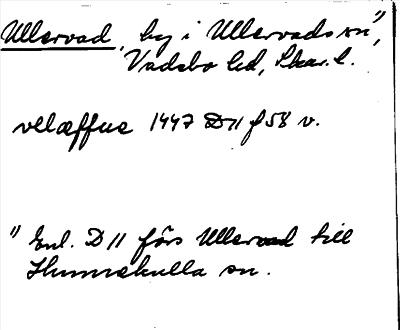 Ullervad, by i Ullervads sn",
Vadsbo hd, Skar. l.
vllæffue 1447 D 11 f 58 v.
" Enl. D 11 förs Ullervad till
Hunnekulla sn.